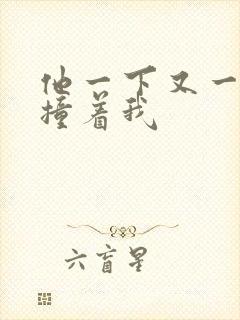 他一下又一
撞着我
六盲星